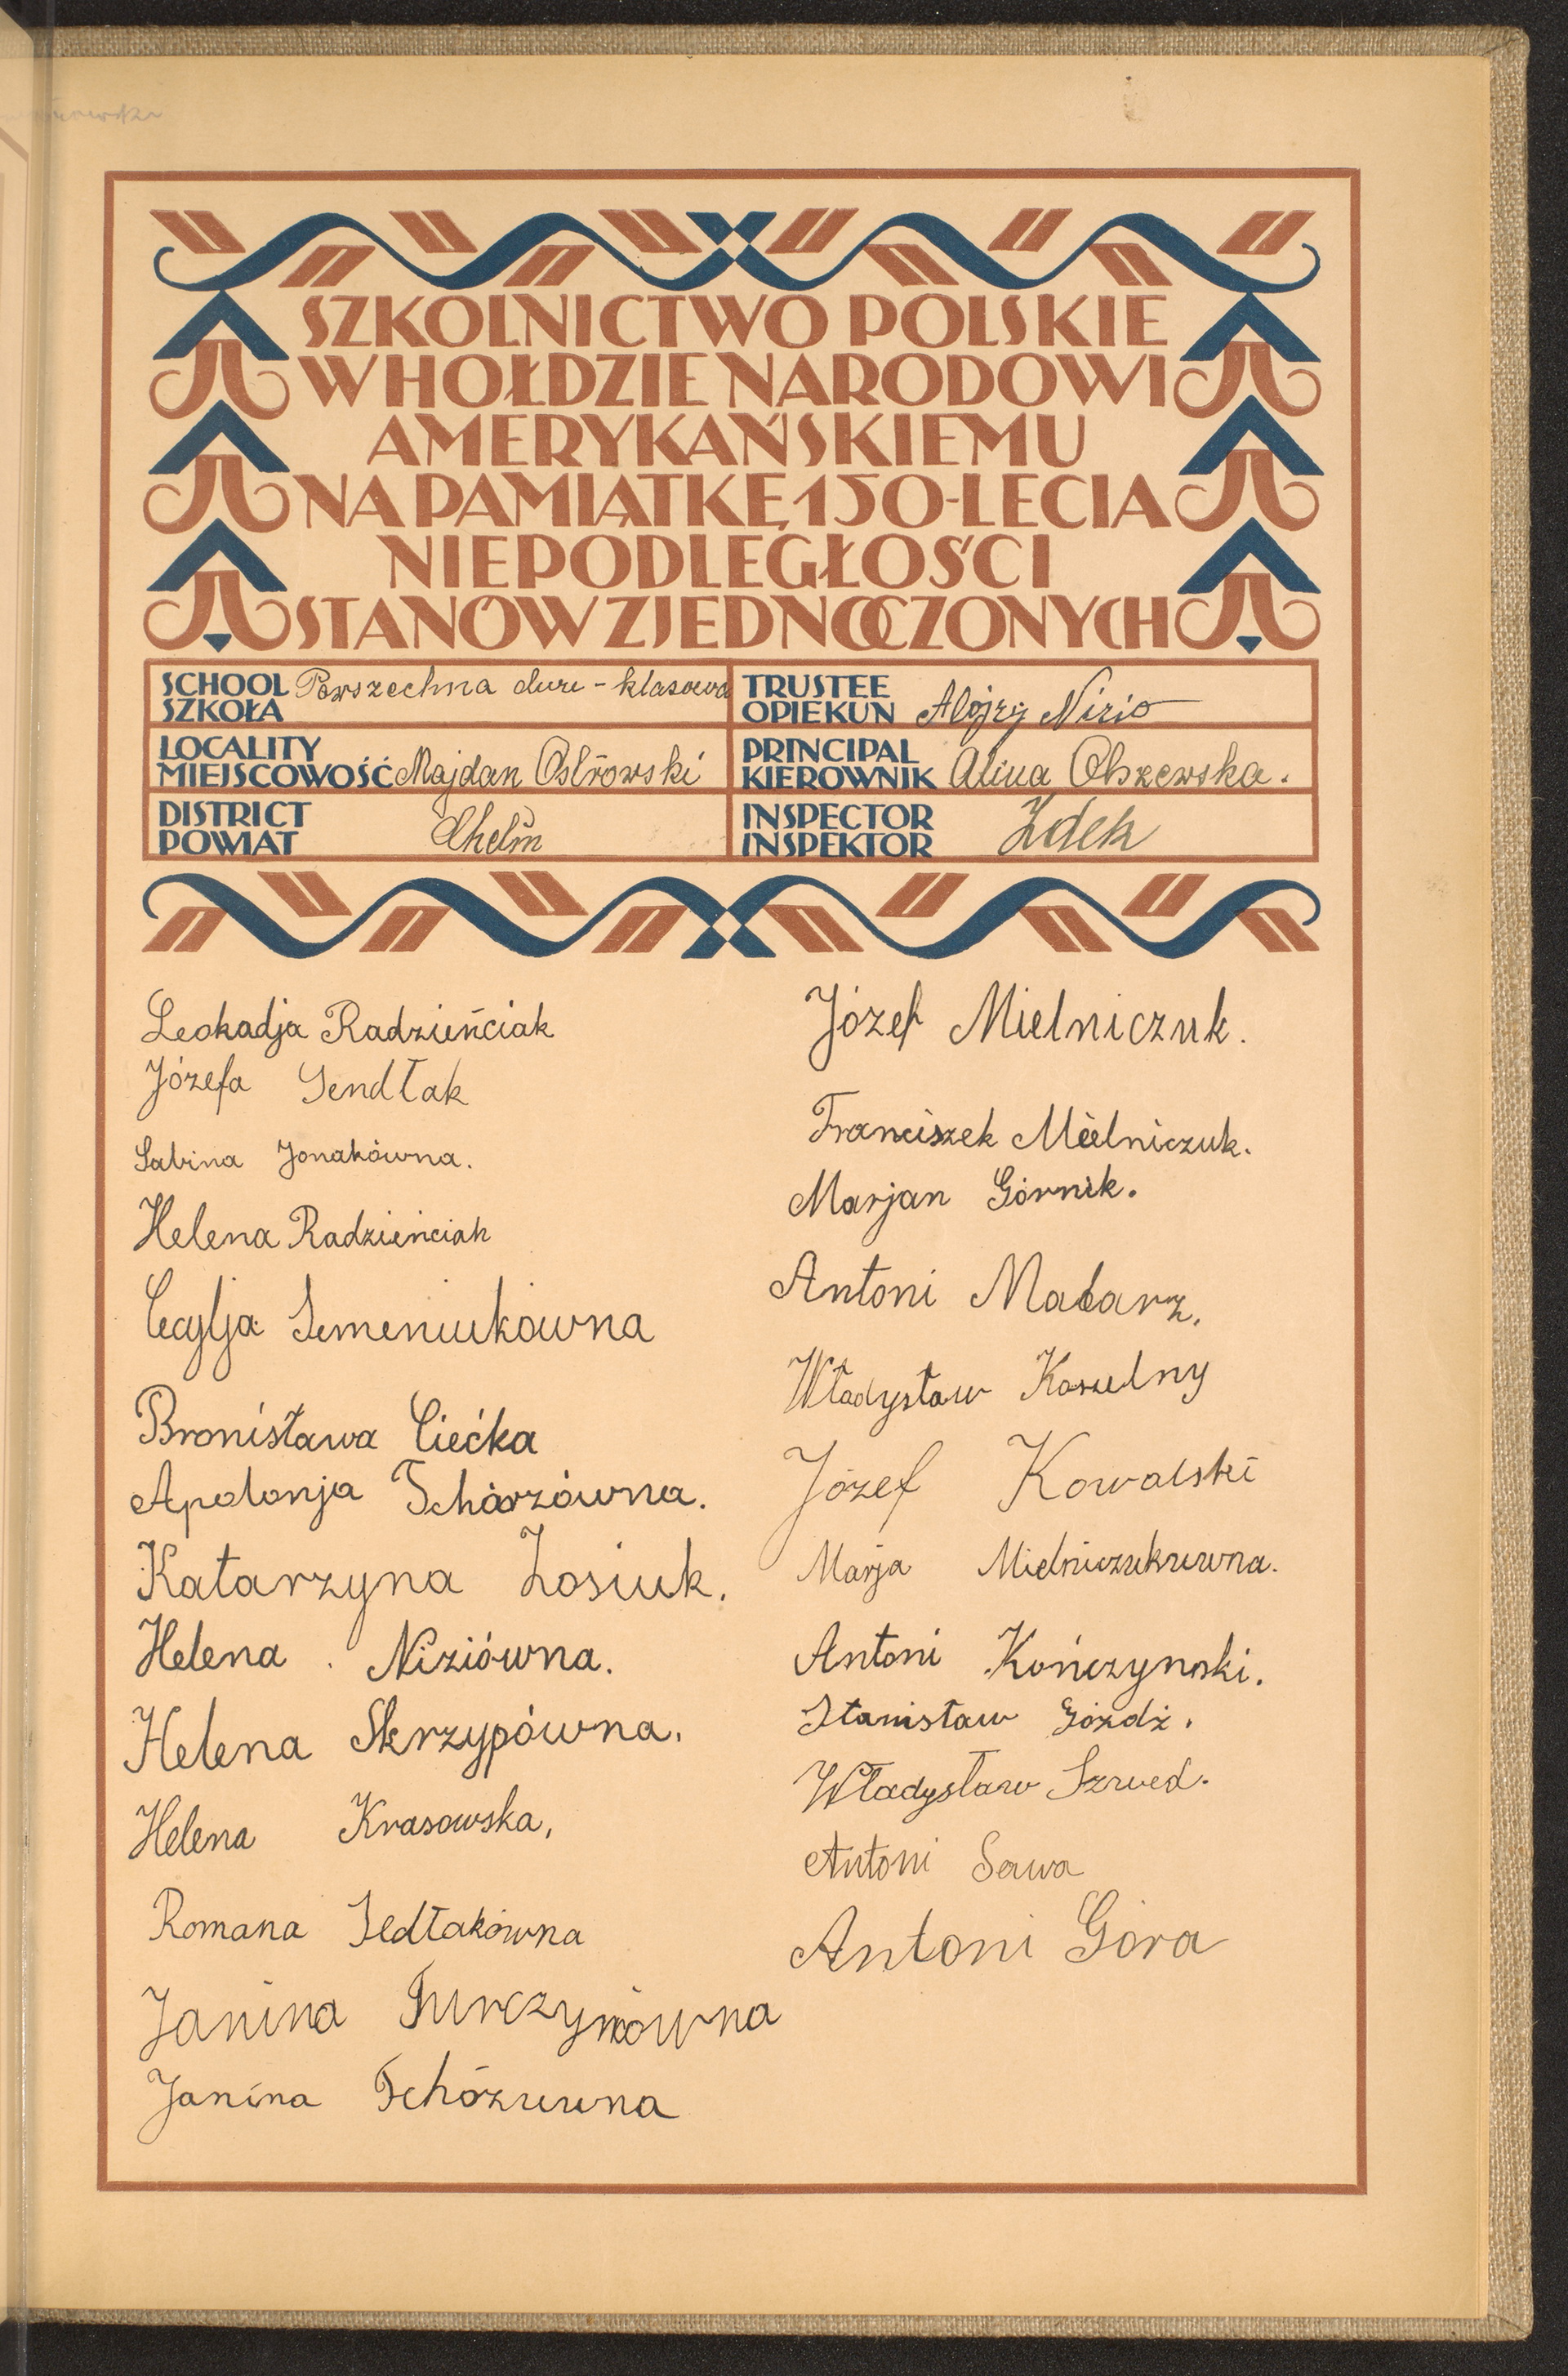 SZKOLNICTWO POLSKIE
W HOŁDZIE NARODOWI
AMERYKAŃSKIEMU
NA PAMIĄTKĘ 150-LECIA
NIEPODLEGŁOŚCI
STANÓW ZJEDNOCZONYCH
SCHOOL
SZKOŁA
Powszechna dwu-klasowa
TRUSTEE
OPIEKUN
Alojzy Nizio
LOCALITY
MIEJSCOWOŚĆ
Majdan Ostrowski
PRINCIPAL
KIEROWNIK
Alina Olszewska.
DISTRICT
POWIAT
Chełm
INSPECTOR
INSPEKTOR
Zdek
Leokadja Radzieńciak
Józefa Sendłak
Sabina Jonakówna.
Helena Radzieńciak
Cecylja Semeniukówna
Bronisława Ciećka
Apolonja Tchórzówna.
Katarzyna Łosiuk.
Helena . Niziówna.
Helena Skrzypówna.
Helena Krasowska,
Romana Sedłakówna
Janina Turczynówna
Janina Tchózuwna
Józef Mielniczuk.
Franciszek Mielniczuk.
Marjan Górnik.
Antoni Malarz.
Władysław Koszulny
Józef Kowalski
Marja Mielniczukuwna.
Antoni Kończynski.
Stanisław Góźdź.
Władysław Szwed.
Antoni Sawa
Antoni Góra